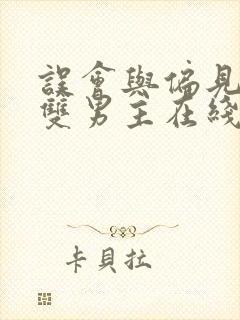 誤會與偏見
雙男主在綫
卡貝拉